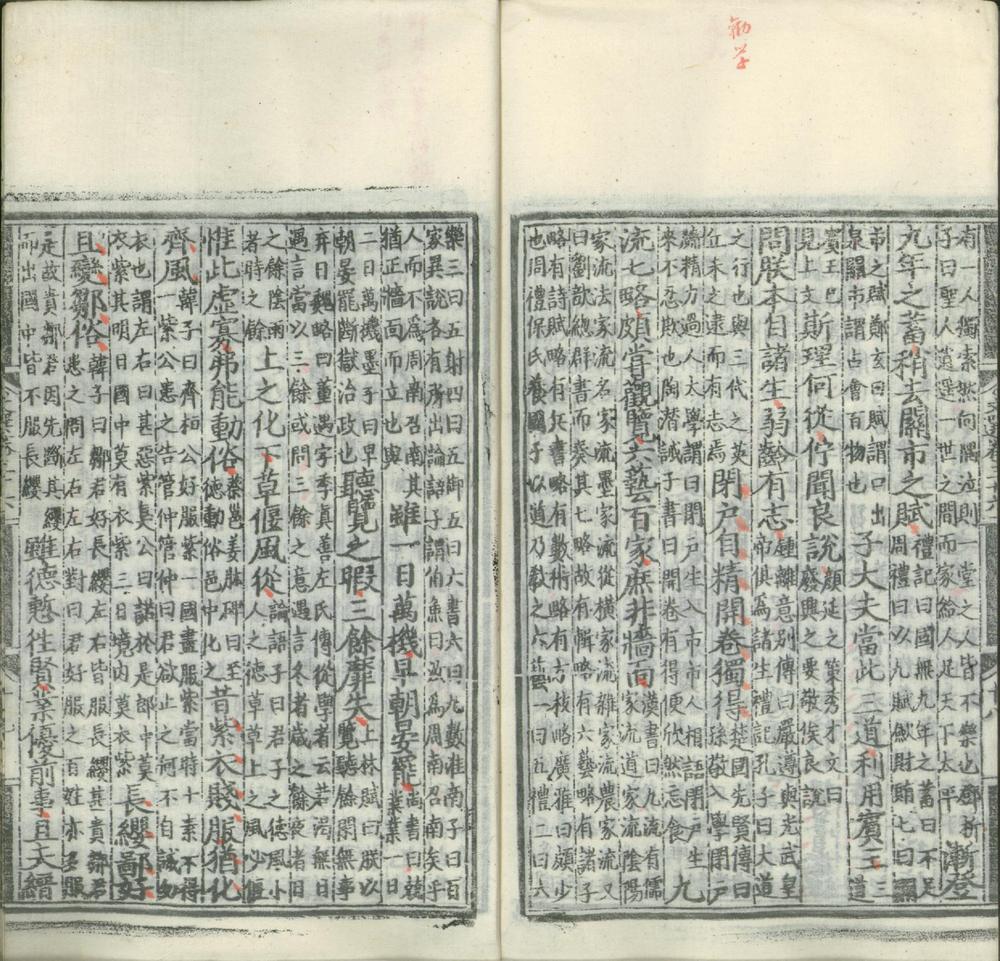 勸学
有一人獨索然向隅泣則一堂之人皆不樂也鄧析
子曰聖人逍遙一世之間而家給人足天下太平
漸登
九年之蓄稍去關市之賦
禮記曰國無九年之蓄曰不足
周禮曰以九賦斂財賄七曰關
市之賦鄭玄曰賦謂口出
泉關市謂占會百物也
子大夫當此三道利用賓王
三道
賓王已
見上文
斯理何從佇聞良說
顏延之策秀才文曰
廢興之要敬俟良說
問朕本自諸生弱齡有志
鍾離意別傳曰嚴遵與光武皇
帝俱爲諸生禮記孔子曰大道
之行也與三代之英
丘未之逮而有志焉
閉戶自精開卷獨得
楚國先賢傳曰
孫敬入學閉戶
牖精力過人太學謂曰閉戶生入市市人相語閉戶生
來不忍欺也陶潛誡子書曰開卷有得便欣然忘食
九
流七略頗嘗觀覽六藝百家庶非牆面
漢書曰九流有儒
家流道家流陰陽
家流法家流名家流墨家流從橫家流雜家流農家流又
曰劉歆總群書而奏其七略故有輯略有六藝略有諸子
略有詩賦略有兵書略有數術略有方枝略廣雅曰頗少
也周禮保氏養國子以道乃教之六藝一曰五禮二曰六
樂三曰五射四曰五御五曰六書六曰九數淮南子曰百
家異說各有所出論語子謂伯魚曰汝爲周南召南矣乎
人而不爲周南召南其
猶正牆面而立也與
雖一日萬機早朝晏罷
尚書曰兢
兢業業一日
二日萬機墨子曰早
朝晏罷斷獄治政也
聽覽之暇三餘靡失
上林賦曰朕以
覽聽餘閑無事
棄日魏略曰董遇字季真善左氏傳從學者云若渴無日
遇言當以三餘或問三餘之意遇言冬者歲之餘夜者日
之餘陰雨
者時之餘
上之化下草偃風從
論語子曰君子之德風小
人之德草草上之風必偃
惟此虛寡弗能動俗
蔡邕姜肱碑曰至
德動俗邑中化之
昔紫衣賤服猶化
齊風
韓子曰齊桓公好服紫一國盡服紫當時十素不得
一紫公患之告管仲管仲曰君欲止之何不自誡勿
衣也謂左右曰甚惡紫臭公曰諾於是郎中莫
衣紫其明日國中莫有衣紫三日境內莫衣紫
長纓鄙好
且變鄒俗
韓子曰鄒君好長纓左右皆服長纓甚貴鄒君
患之問左右左右對曰君好服之百姓亦多服
是故貴鄒君因先斷其纓
而出國中皆不服長纓
雖德慙往賢業優前事且夫縉